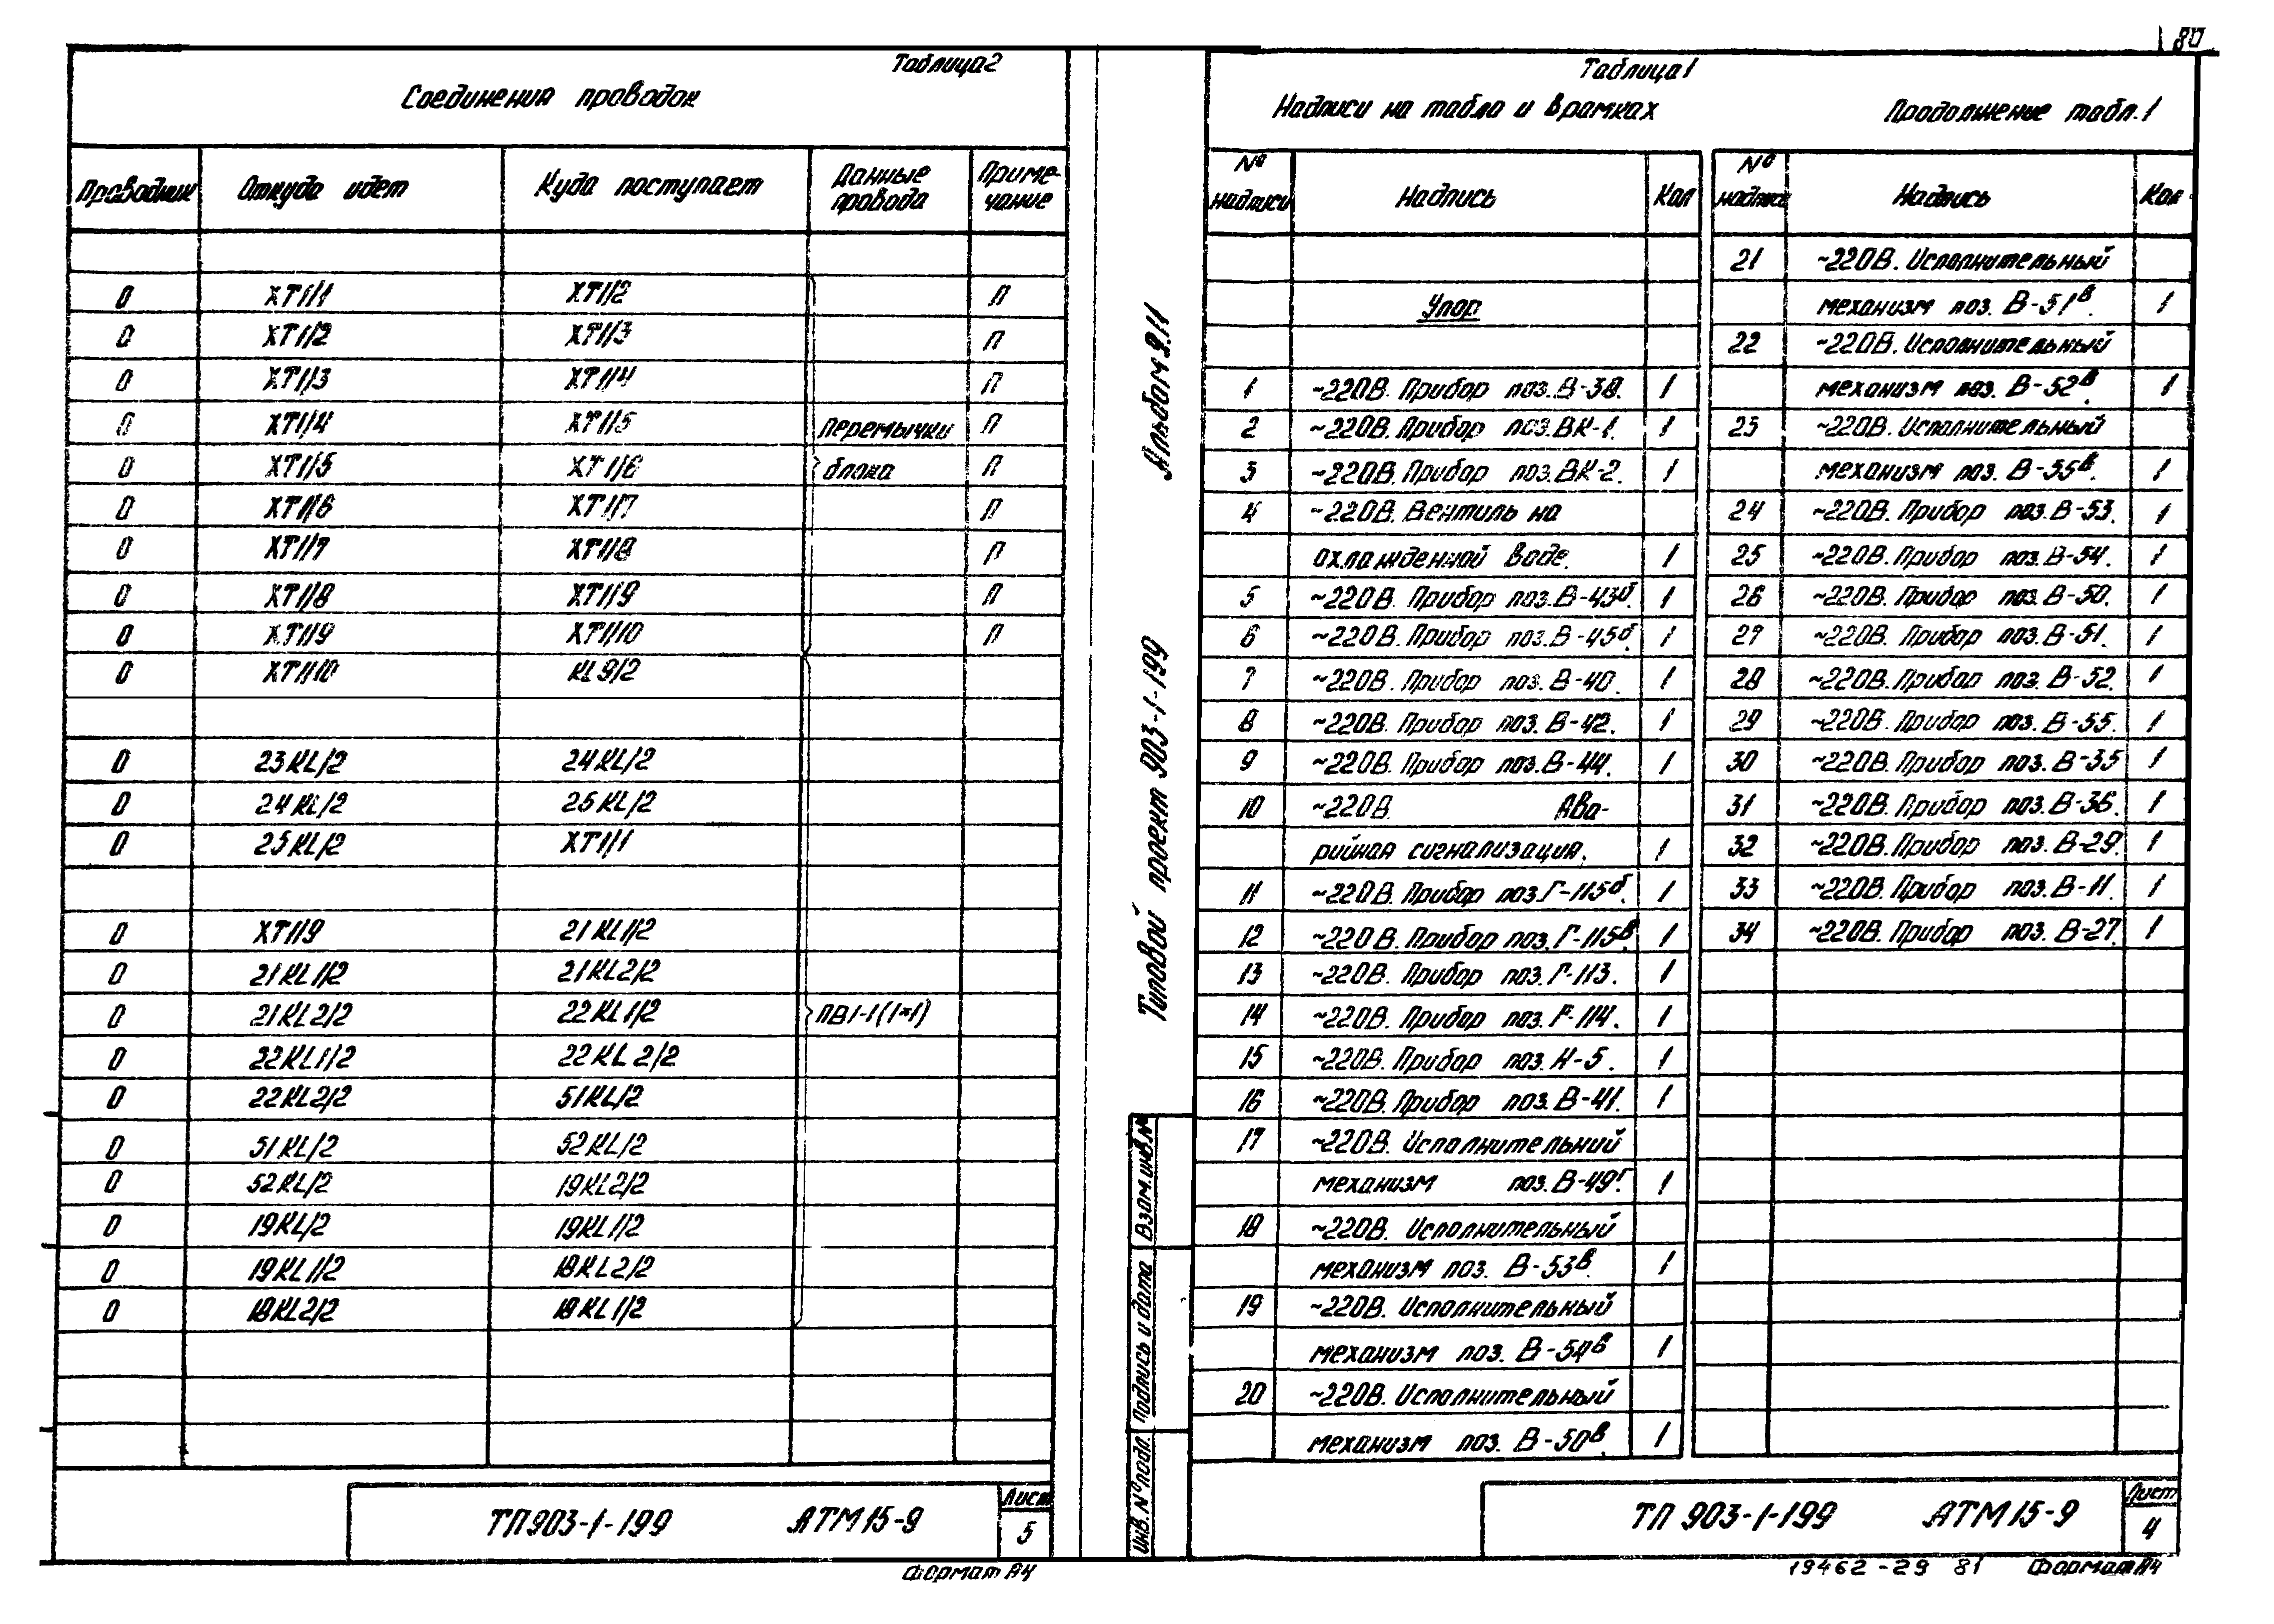 80
Таблица 2
Соединения проводок
Проводник Откуда идет Куда поступает Данные провода Примечание
0 XT1/1 XT1/2 П
0 XT1/2 XT1/3 П
0 XT1/3 XT1/4 П
0 XT1/4 XT1/5 Перемычки П
0 XT1/5 XT1/6 блока П
0 XT1/6 XT1/7 П
0 XT1/7 XT1/8 П
0 XT1/8 XT1/9 П
0 XT1/9 XT1/10 П
0 XT1/10 KL9/2
0 23KL/2 24KL/2
0 24KL/2 25KL/2
0 25KL/2 XT1/1
0 XT1/9 21KL1/2
0 21KL1/2 21KL2/2
0 21KL2/2 22KL1/2 ПВ1-1(1×1)
0 22KL1/2 22KL2/2
0 22KL2/2 51KL/2
0 51KL/2 52KL/2
0 52KL/2 19KL2/2
0 19KL/2 19KL1/2
0 19KL1/2 18KL2/2
0 18KL2/2 18KL1/2
ТП903-1-199 АТМ15-9 Лист 5
Формат А4
Альбом 9.11
Типовой проект 903-1-199
Взам.инв.№
Подпись и дата
Инв.№подл.
Таблица 1
Надписи на табло и в рамках
№ надписи Надпись Кол
Упор
1 ~220В. Прибор поз. В-38. 1
2 ~220В. Прибор поз. ВК-1. 1
3 ~220В. Прибор поз. ВК-2. 1
4 ~220В. Вентиль на
охлажденной воде. 1
5 ~220В. Прибор поз. В-43б. 1
6 ~220В. Прибор поз. В-45б. 1
7 ~220В. Прибор поз. В-40. 1
8 ~220В. Прибор поз. В-42. 1
9 ~220В. Прибор поз. В-44. 1
10 ~220В. Ава-
рийная сигнализация. 1
11 ~220В. Прибор поз. Г-115б. 1
12 ~220В. Прибор поз. Г-115в 1
13 ~220В. Прибор поз. Г-113. 1
14 ~220В. Прибор поз. Г-114. 1
15 ~220В. Прибор поз. Н-5. 1
16 ~220В. Прибор поз. В-41. 1
17 ~220В. Исполнительний
механизм поз. В-49г. 1
18 ~220В. Исполнительный
механизм поз. В-53в. 1
19 ~220В. Исполнительный
механизм поз. В-54в 1
20 ~220В. Исполнительный
механизм поз. В-50в. 1
Продолжение табл. 1
№ надписи Надпись Кол
21 ~220В. Исполнительный
механизм поз. В-51в. 1
22 ~220В. Исполнительный
механизм поз. В-52в. 1
23 ~220В. Исполнительный
механизм поз. В-55в. 1
24 ~220В. Прибор поз. В-53. 1
25 ~220В. Прибор поз. В-54. 1
26 ~220В. Прибор поз. В-50. 1
27 ~220В. Прибор поз. В-51. 1
28 ~220В. Прибор поз. В-52. 1
29 ~220В. Прибор поз. В-55. 1
30 ~220В. Прибор поз. В-35 1
31 ~220В. Прибор поз. В-36. 1
32 ~220В. Прибор поз. В-29. 1
33 ~220В. Прибор поз. В-11. 1
34 ~220В. Прибор поз. В-27. 1
ТП 903-1-199 АТМ15-9 Лист 4
19462-29 81 Формат А4